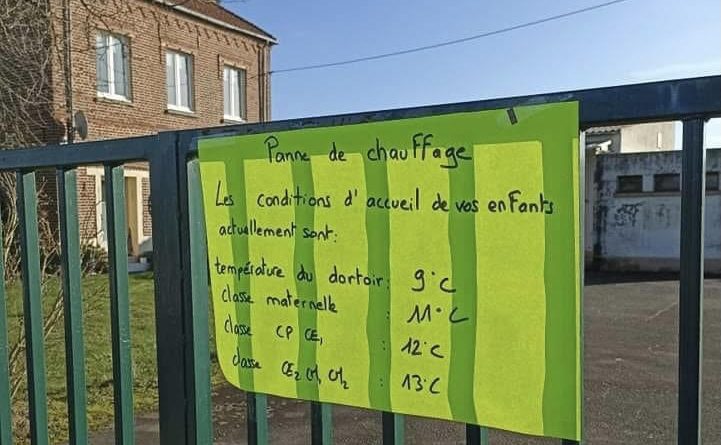 Panne de chauffage
Les conditions d'accueil de vos enfants
actuellement sont:
température du dortoir: 9°C
classe maternelle : 11°C
classe CP CE1 : 12°C
classe CE2 CM1 CM2 : 13°C